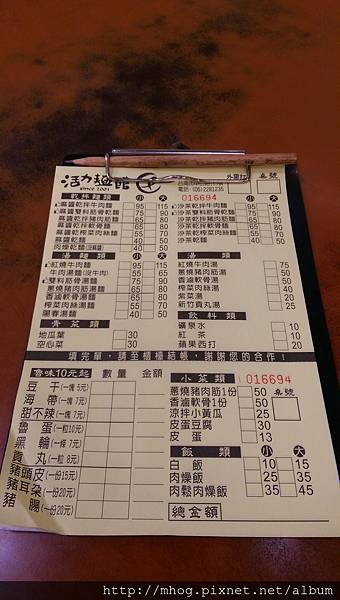 活力麵館
since 2001
外帶打
桌號
電話:(06)2281235
016694
乾拌麵類 小 大
麻醬乾拌牛肉麵 95 115
麻醬雙料筋骨乾麵 75 90
麻醬乾拌豬肉筋麵 65 80
麻醬軟骨乾麵 65 80
麻醬乾拌榨菜肉絲麵 55 65
麻醬乾麵 40 50
肉燥乾麵(豆麻醬) 40 50
沙茶乾拌牛肉麵 95 115
沙茶雙料筋骨乾麵 75 90
沙茶乾拌豬肉筋麵 65 80
沙茶軟骨乾麵 65 80
沙茶乾拌榨菜肉絲麵 55 65
沙茶乾麵 40 50
湯麵類 小 大
紅燒牛肉麵 95 115
牛肉湯麵(沒牛肉) 55 65
雙料筋骨湯麵 75 90
蔥燒豬肉筋湯麵 65 80
香滷軟骨湯麵 65 80
榨菜肉絲湯麵 55 65
陽春湯麵 40 50
湯類
紅燒牛肉湯 75
蔥燒豬肉筋湯 50
香滷軟骨湯 50
榨菜肉絲湯 50
紫菜湯 20
新竹貢丸湯 30
青菜類
地瓜葉 30
空心菜 30
飲料類
礦泉水 10
紅茶 10
蘋果西打 20
填完單,請至櫃檯結帳,謝謝您的合作!
魯味10元起 數量 金額
豆干(一塊5元)
海帶(一塊7元)
甜不辣(一塊7元)
魯蛋(一粒10元)
黑輪(一條7元)
貢丸(一粒8元)
豬頭皮(一份15元)
豬耳朵(一份20元)
豬腸(一份20元)
小菜類 016694
蔥燒豬肉筋1份 50 桌號
香滷軟骨1份 50
涼拌小黃瓜 25
皮蛋豆腐 30
皮蛋 13
飯類 小 大
白飯 10 15
肉燥飯 25 35
肉鬆肉燥飯 35 45
總金額
http://mhog.pixnet.net/album